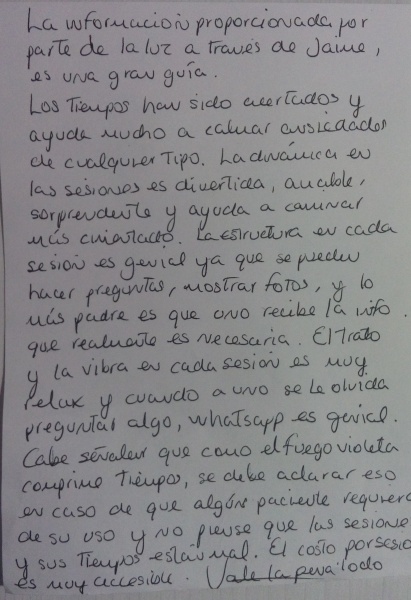 La información proporcionada por
parte de la luz a través de Jaime,
es una gran guía.
Los Tiempos han sido acertados y
ayuda mucho a calmar ansiedades
de cualquier Tipo. La dinámica en
las sesiones es divertida, amable,
sorprendente y ayuda a caminar
más orientado. La estructura en cada
sesión es genial ya que se pueden
hacer preguntas, mostrar fotos, y lo
más padre es que uno recibe la info.
que realmente es necesaria. El Trato
y la vibra en cada sesión es muy
relax y cuando a uno se le olvida
preguntar algo, whatsapp es genial.
Cabe señalar que como el fuego violeta
comprime Tiempos, se debe aclarar eso
en caso de que algún paciente requiera
de su uso y no piense que las sesiones
y sus Tiempos están mal. El costo por sesión
es muy accesible. Vale la pena todo